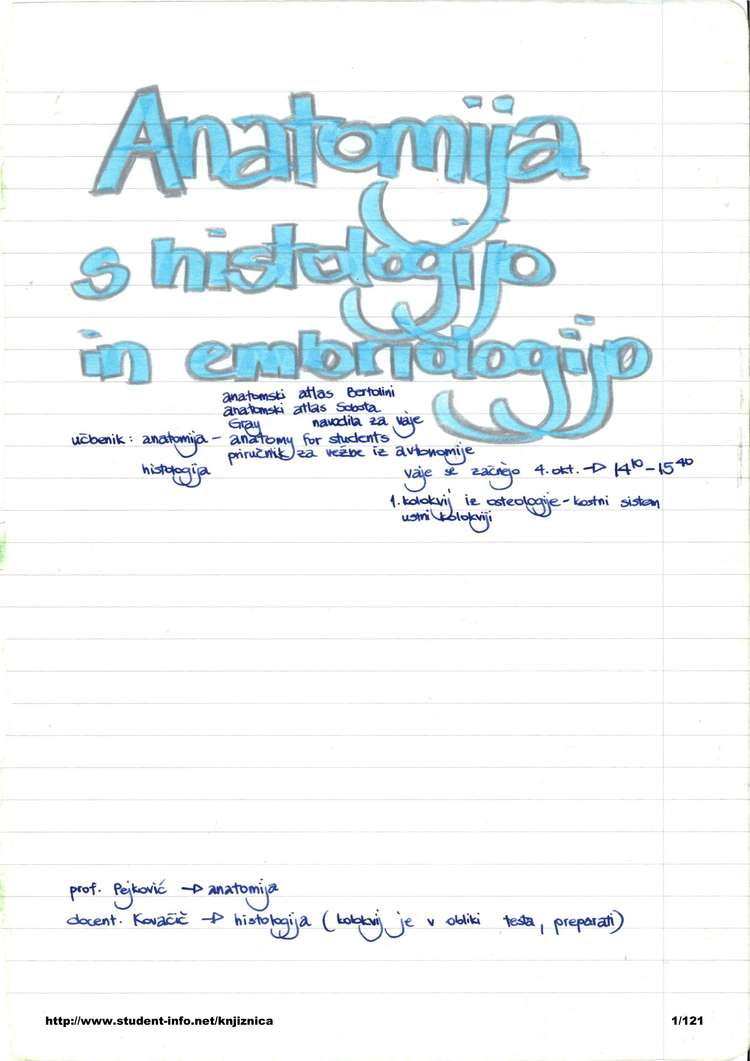 Anatomija
s histologijo
in embriologijo
anatomski atlas Bertolini
anatomski atlas Sobota
Gray navodila za vaje
učbenik: anatomija - anatomy for students
priručnik za vežbe iz avtonomije
histologija
vaje se začnejo 4. okt. → 14¹⁰ - 15⁴⁰
1. kolokvij iz osteologije - kostni sistem
ustni kolokviji
prof. Pejković → anatomija
docent. Kovačič → histologija (kolokvij je v obliki testa, preparati)
http://www.student-info.net/knjiznica 1/121